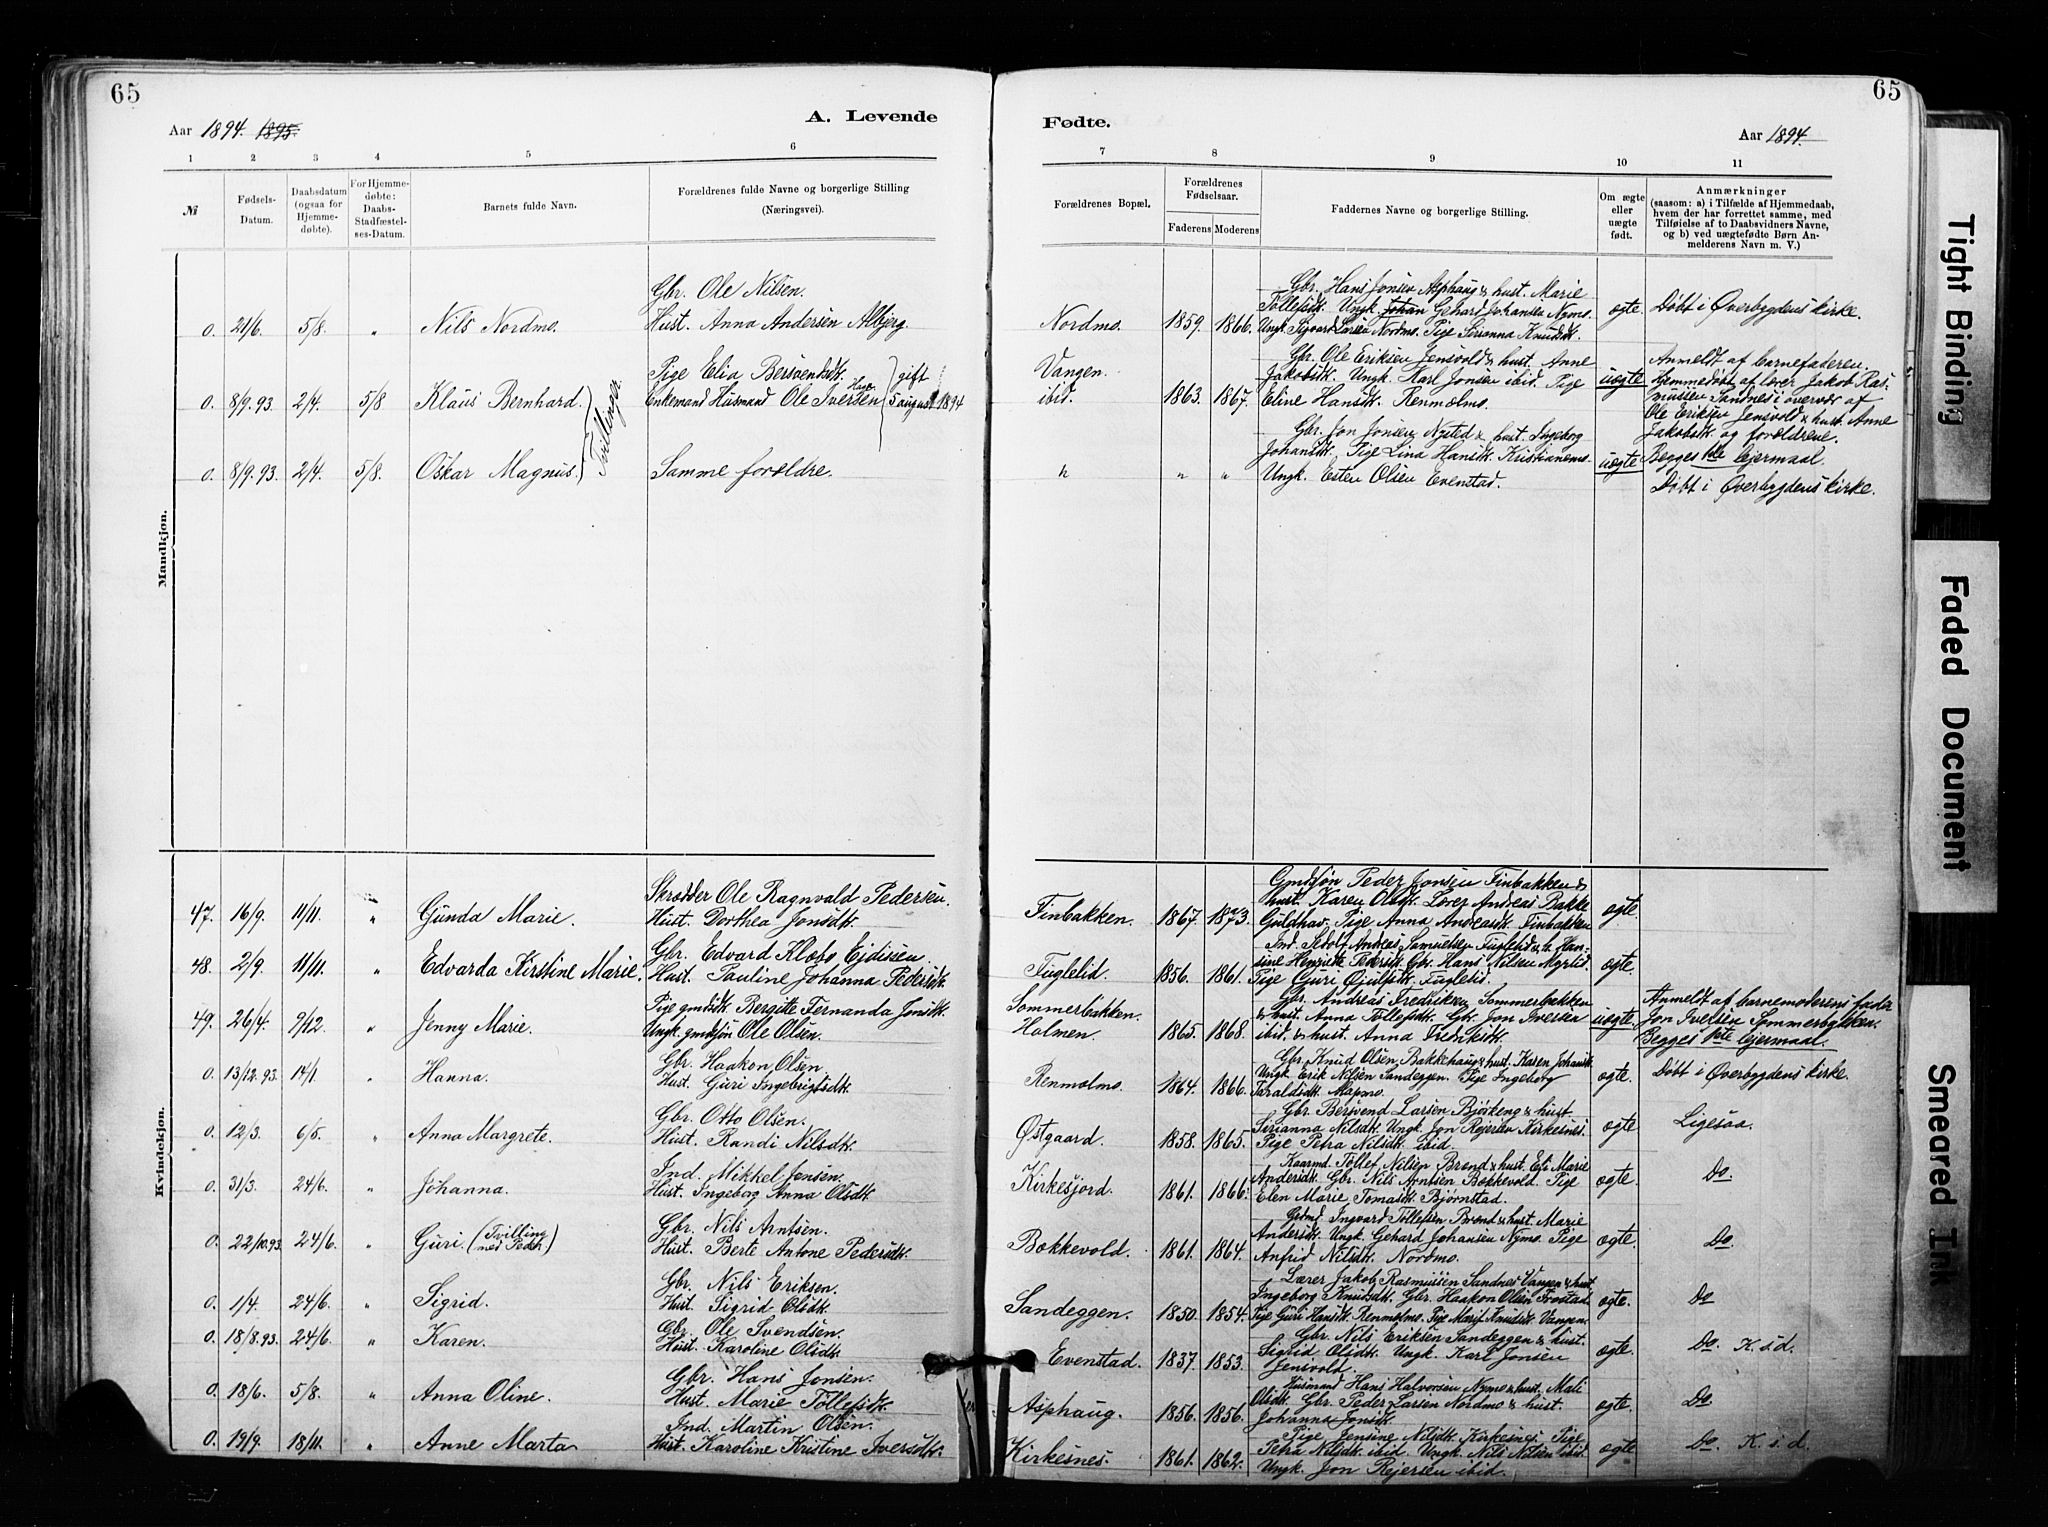 65
65
Aar 1894. 1895.
A. Levende
Fødte.
Aar 1894.
1 2 3 4 5 6
7 8 9 10 11
№
Fødsels-Datum.
Daabsdatum (ogsaa for Hjemme-døbte).
For Hjemme-døbte: Daabs-Stadfæstel-ses-Datum.
Barnets fulde Navn.
Forældrenes fulde Navne og borgerlige Stilling (Næringsvei).
Forældrenes Bopæl.
Forældrenes Fødselsaar.
Faderens Moderens
Faddernes Navne og borgerlige Stilling.
Om ægte eller uægte født.
Anmærkninger
(saasom: a) i Tilfælde af Hjemmedaab,
hvem der har forrettet samme, med
Tilføielse af to Daabsvidners Navne,
og b) ved uægtefødte Børn An-
melderens Navn m. V.)
Mandkjøn.
Gbr. Ole Nilsen.
0. 21/6. 5/8. " Nils Nordmo. Hust. Anna Andersen Albjerg.
Nordmo. 1859. 1866.
Gbr. Hans Jonsen Asphaug & hust. Marie
Tollefsdt. Ungk. Johan Gehard Johansen Nymo.
Ungk. Sigvard Larsen Nordmo. Pige Sirianna Knudsdt.
ægte. Døbt i Øverbygdens kirke.
Pige Elia Bersvendsdt.
0. 8/9.93. 2/4. 5/8 Klaus Bernhard. Enkemand Husmand Ole Iversen Hage. gift 5 august 1894
Tvillinger.
Vangen.
ibid. 1863. 1867.
Gbr. Ole Eriksen Jensvold & hust. Anne
Jakobsdt. Ungk. Karl Jonsen ibid. Pige
Eline Hansdt. Renmælmo.
uægte
Anmeldt af barnefaderen.
Hjemmedøbt af lærer Jakob Ras-
mussen Sandnes i overvær af
Ole Eriksen Jensvold & hust. Anne
Jakobsdt. og forældrene.
Begges 1ste lejermaal.
Døbt i Øverbygdens kirke.
0. 8/9.93. 2/4. 5/8. Oskar Magnus. Samme forældre.
" " "
Gbr. Jon Jonsen Nysted & hust. Ingeborg
Johansdt. Pige Lina Hansdt. Kristianemo.
Ungk. Esten Olsen Evenstad.
uægte
Kvindekjøn.
Skrædder Ole Ragnvald Pedersen.
47. 16/9. 11/11. " Gunda Marie. Hust. Dorthea Jonsdt.
Finbakken. 1867. 1873.
Gmdsøn Peder Jonsen Finbakken &
hust. Karen Olsdt. Lærer Andreas Bakke
Guldhav. Pige Anna Andreasdt. Finbakken
ægte.
Gbr. Edvard Klæbo Ejdissen.
48. 2/9. 11/11. " Edvarda Kirstine Marie. Hust. Pauline Johanna Pedersdt.
Fuglelid. 1856. 1861.
Ind. Sedolf Andreas Samuelsen Fuglelid & h. Han-
sine Henriette Pedersdt. Gbr. Hans Nilsen Myrlid.
Pige Guri Gjulsdt. Fuglelid.
ægte.
Pige gmdsdt. Bergitte Fernanda Jonsdt.
49. 26/4. 9/12. " Jenny Marie. Ungk. gmdsøn Ole Olsen.
Sommerbakken.
Holmen. 1865. 1868.
Gbr. Andreas Fredriksen Sommerbakken
& hust. Anna Tollefsdt. Gbr. Jon Iversen
ibid. & hust. Anna Fredriksdt.
uægte.
Anmeldt af barnemoderens fader
Jon Iversen Sommerbakken.
Begges 1ste lejermaal.
Gbr. Haakon Olsen.
0. 13/12.93. 14/1. " Hanna. Hust. Guri Ingebrigtsdt.
Renmælmo. 1864. 1866.
Gbr. Knud Olsen Bakkehaug & hust. Karen Johansdt.
Ungk. Erik Nilsen Sandeggen. Pige Ingeborg
Taraldsdt. Moamo.
ægte. Døbt i Øverbygdens kirke.
Gbr. Otto Olsen.
0. 12/3. 6/5. " Anna Margrete. Hust. Randi Nilsdt.
Østgaard. 1858. 1865.
Gbr. Bersvend Larsen Bjørkeng & hust.
Sirianna Nilsdt. Ungk. Jon Rejersen Kirkesnes.
Pige Petra Nilsdt. ibid.
ægte Ligesaa.
Ind. Mikkel Jensen.
0. 31/3. 24/6. " Johanna. Hust. Ingeborg Anna Olsdt.
Kirkesjord. 1861. 1866.
Kaarmd. Tollef Nilsen Brend & hust. Eli Marie
Andersdt. Gbr. Nils Arntsen Bakkevold. Pige
Elen Marie Tomasdt. Bjørnstad.
ægte. Do.
Gbr. Nils Arntsen.
0. 22/10.93. 24/6. " Guri. (Tvilling med Peder) Hust. Berte Antone Pedersdt.
Bakkevold. 1861. 1864.
Grdmd. Ingvard Tollefsen Brend & hust. Marie
Andersdt. Ungk. Gehard Johansen Nymo. Pige
Anfrid Nilsdt. Nordmo.
ægte. Do.
Gbr. Nils Eriksen.
0. 1/4. 24/6. " Sigrid. Hust. Sigrid Olsdt.
Sandeggen. 1850. 1854.
Lærer Jakob Rasmussen Sandnes Vangen & hust
Ingeborg Knudsdt. Gbr. Haakon Olsen Frostad.
Pige Guri Hansdt. Renmælmo. Pige Marit Knudsdt. Vangen.
ægte. Do
Gbr. Ole Svendsen.
0. 18/8.93. 24/6. " Karen. Hust. Karoline Olsdt.
Evenstad. 1837. 1853.
Gbr. Nils Eriksen Sandeggen & hust.
Sigrid Olsdt. Ungk. Karl Jonsen
Jensvold.
ægte. Do. K. s. d.
Gbr. Hans Jonsen.
0. 18/6. 5/8. " Anna Oline. Hust. Marie Tollefsdt.
Asphaug. 1856. 1856.
Husmand Hans Halvorsen Nymo & hust. Mali
Olsdt. Gbr. Peder Larsen Nordmo & hust.
Johanna Jonsdt.
ægte. Do.
Ind. Martin Olsen.
0. 19/9. 18/11. " Anne Marta Hust. Karoline Kristine Iversdt.
Kirkesnes. 1861. 1862.
Pige Jensine Nilsdt. Kirkesnes. Pige
Petra Nilsdt. ibid. Ungk. Nils Nilsen ibid.
Ungk. Jon Rejersen ibid.
ægte Do. K. s. d.
Tight Binding
Faded Document
Smeared Ink